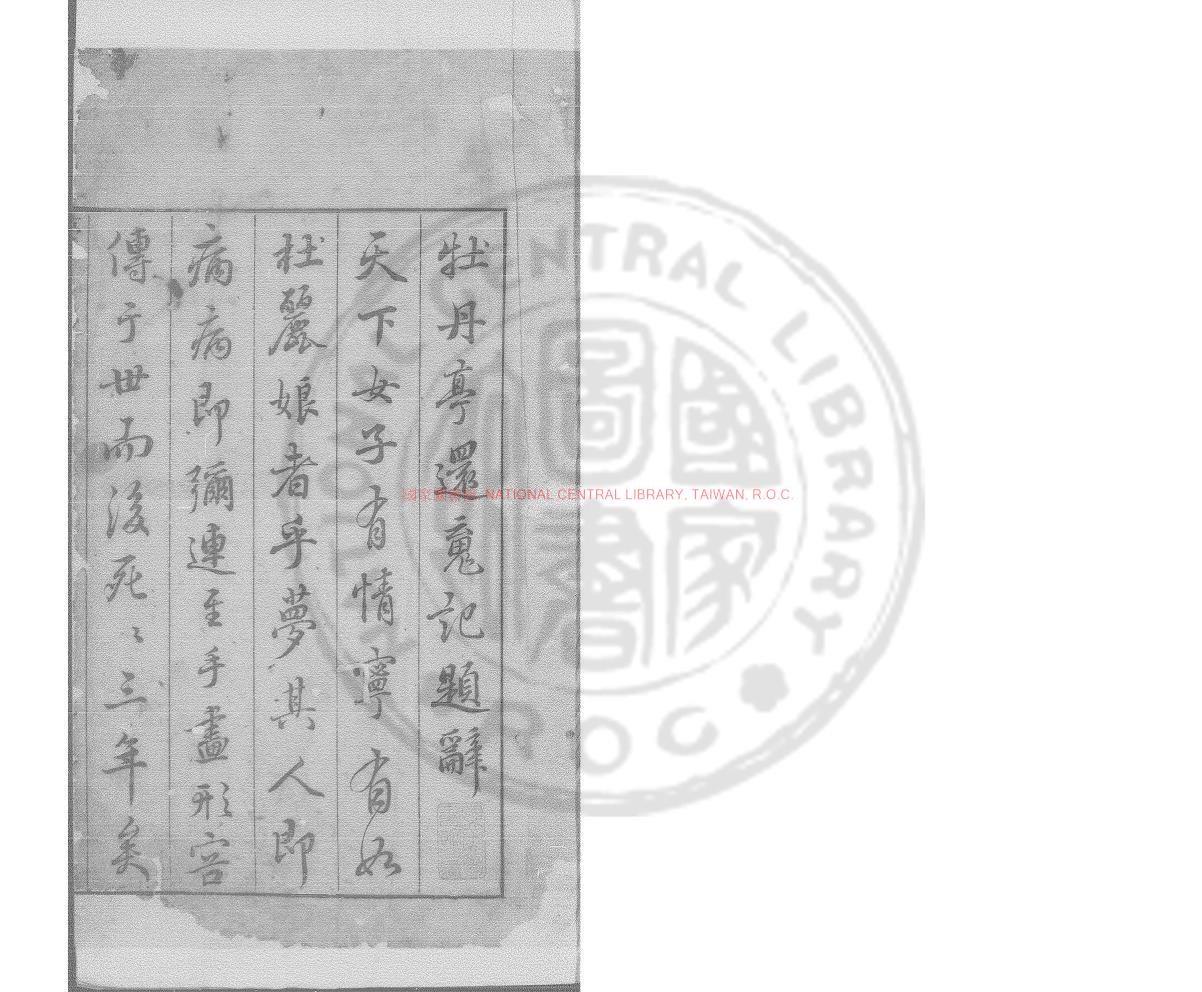 牡丹亭還魂記題辭
天下女子有情寧有如
杜麗娘者乎夢其人即
病病即彌連至手畫形容
傳于世而後死〻三年矣
國家圖書館 NATIONAL CENTRAL LIBRARY, TAIWAN, R.O.C.
NATIONAL CENTRAL LIBRARY
R O C